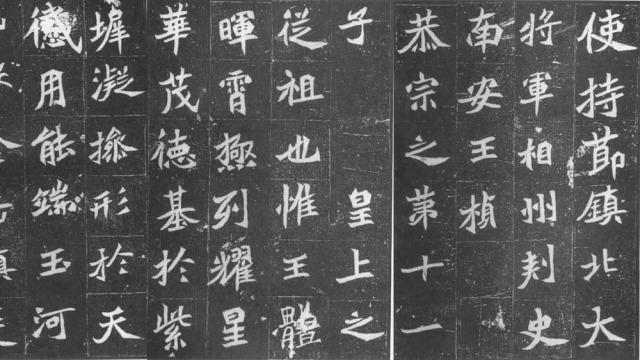 使持節鎮北大
將軍相州刺史
南安王楨
恭宗之第十一
子　　皇上之
從祖也惟王體
暉霄極列耀星
華茂德基於紫
墀凝操形於天
感用能端玉河